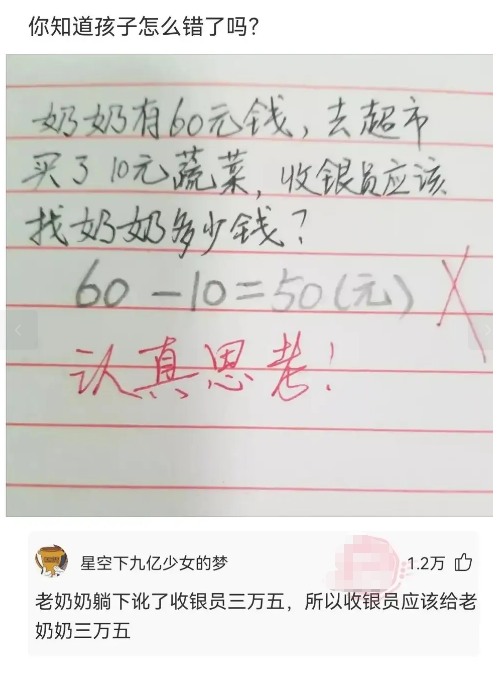 你知道孩子怎么错了吗?
奶奶有60元钱，去超市
买了10元蔬菜，收银员应该
找奶奶多少钱？
60-10=50(元)
认真思考！
星空下九亿少女的梦
1.2万
老奶奶躺下讹了收银员三万五，所以收银员应该给老
奶奶三万五